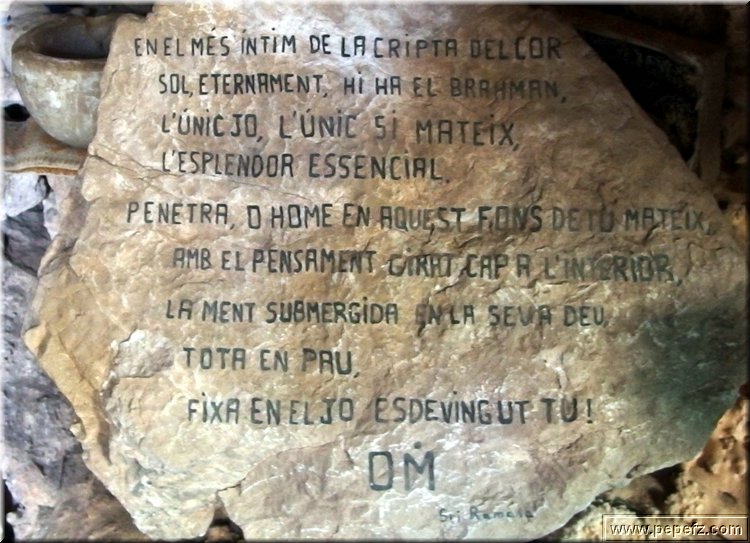 EN EL MÉS ÍNTIM DE LA CRIPTA DEL COR
SOL, ETERNAMENT, HI HA EL BRAHMAN,
L'ÚNIC JO, L'ÚNIC SI MATEIX,
L'ESPLENDOR ESSENCIAL.
PENETRA, O HOME EN AQUEST FONS DE TU MATEIX,
AMB EL PENSAMENT GIRAT CAP A L'INTERIOR,
LA MENT SUBMERGIDA EN LA SEVA DEU,
TOTA EN PAU,
FIXA EN EL JO ESDEVINGUT TU!
OM
Sri Ramana
www.pepefz.com